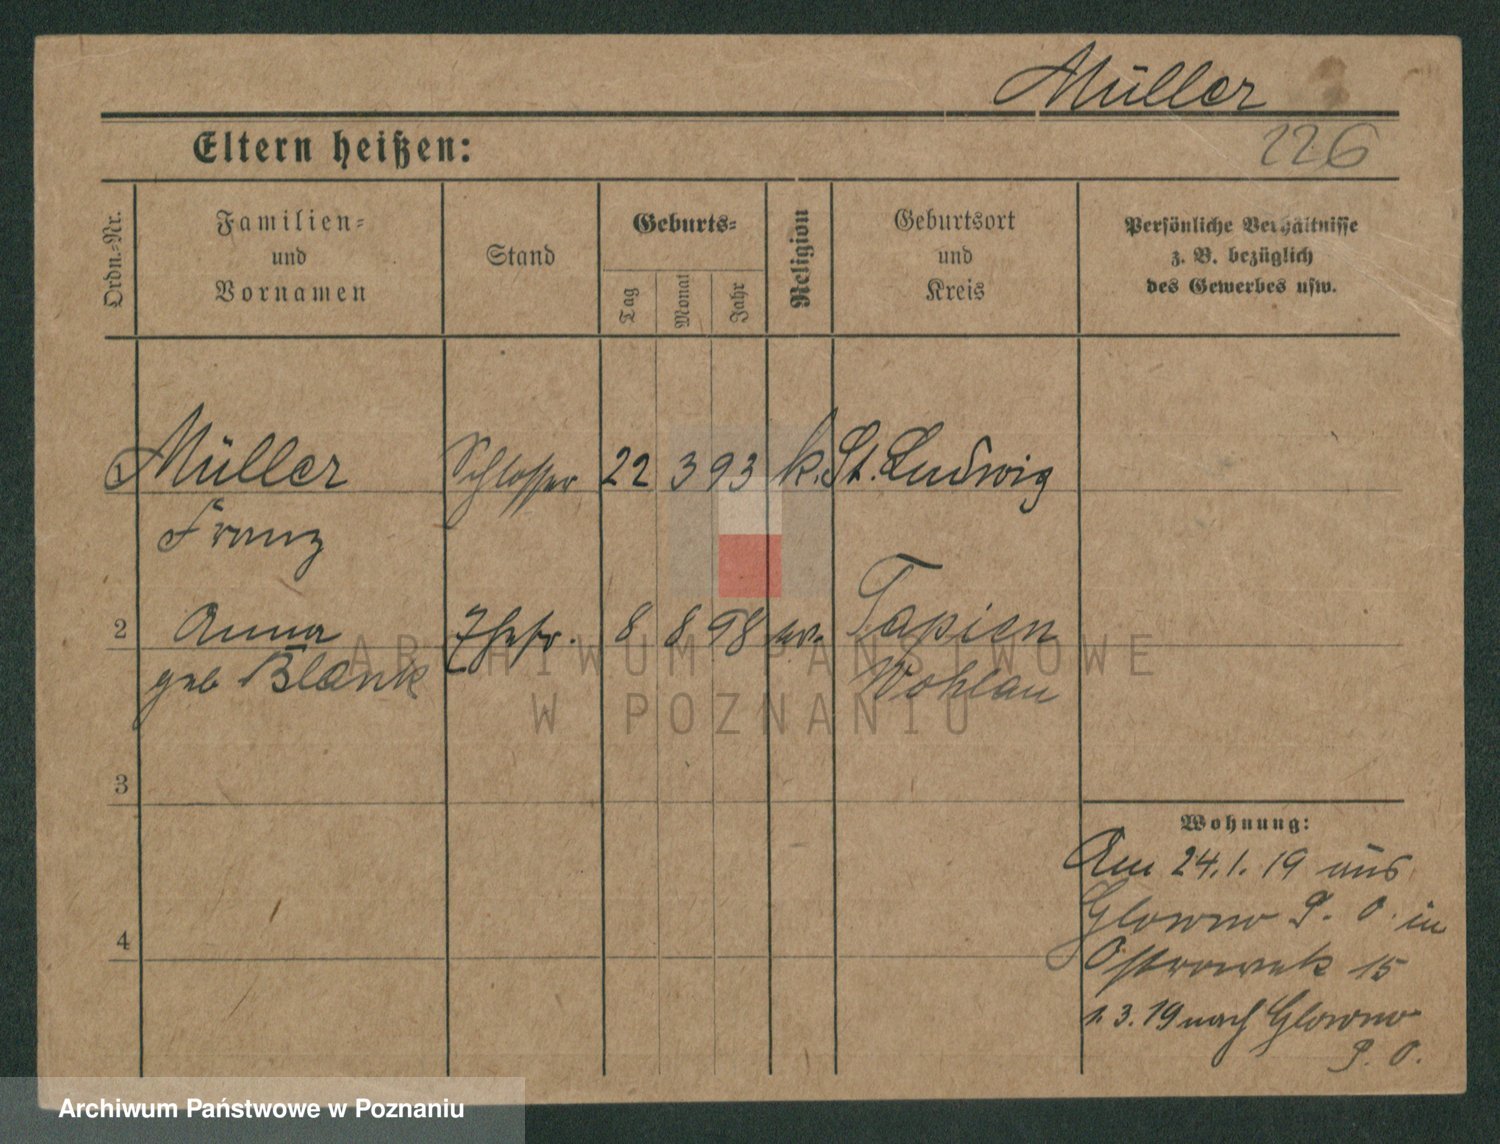 Müller
226
Eltern heißen:
Ordn.-Nr.
Familien-
und
Vornamen
Stand
Geburts-
Tag
Monat
Jahr
Religion
Geburtsort
und
Kreis
Persönliche Verhältnisse
z. B. bezüglich
des Gewerbes usw.
Müller Schlosser 22 3 93 k. St. Ludwig
Franz
2 Anna Ehefr. 8 8 98 Tapien
geb Blank Wohlau
3
4
Wohnung:
Am 24.1.19 aus
Glowno P. O. in
Ostrowek 15
1.3.19 nach Glowno
P. O.
ARCHIWUM PAŃSTWOWE
W POZNANIU
Archiwum Państwowe w Poznaniu